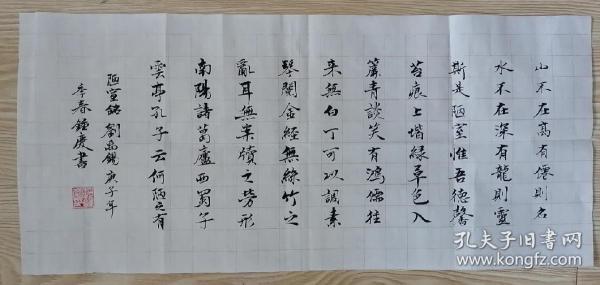 山不在高有僊則名
水不在深有龍則靈
斯是陋室惟吾德馨
苔痕上堦綠草色入
簾青談笑有鴻儒往
來無白丁可以調素
琴閱金經無絲竹之
亂耳無案牘之勞形
南陽諸葛廬西蜀子
雲亭孔子云何陋之有
陋室銘劉禹錫庚子年
季春鍾慶書
孔夫子旧书网
www.kongfz.com